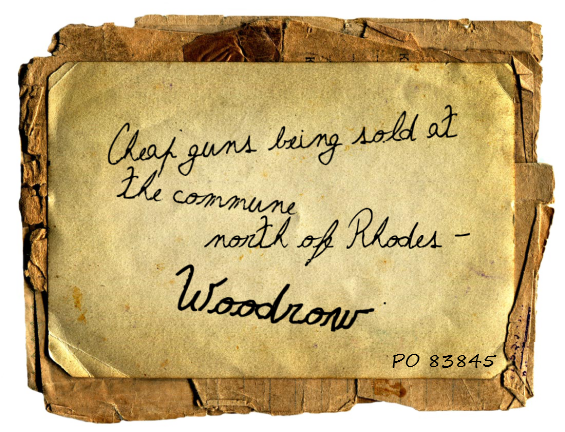 Cheap guns being sold at
the commune
north of Rhodes -
Woodrow
PO 83845